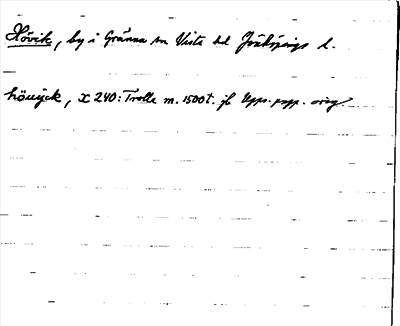 Hövik, by i Gränna sn Vista hd Jönköpings l.
höuijck, X 240: Trolle m. 1500 t. jb Upps. papp. orig.